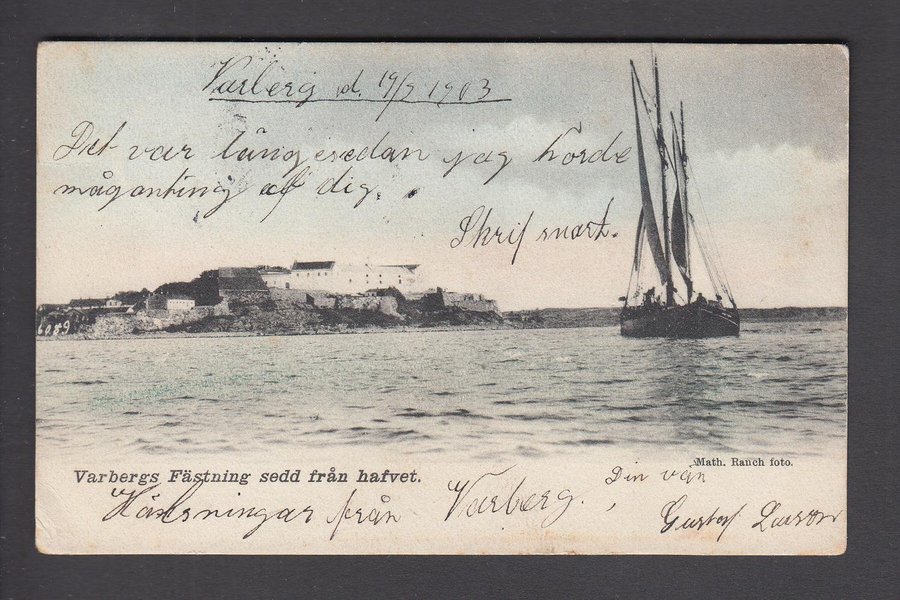 Varberg d. 19/9 1903
Det var lång sedan jag horde
någonting af dig.
Skrif snart.
6089
Varbergs Fästning sedd från hafvet.
Math. Rauch foto.
Hälsningar från Varberg.
Din vän
Gustaf Larson